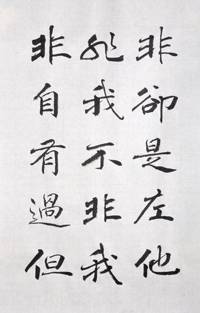 非卻是左他
非我不非我
非自有過但